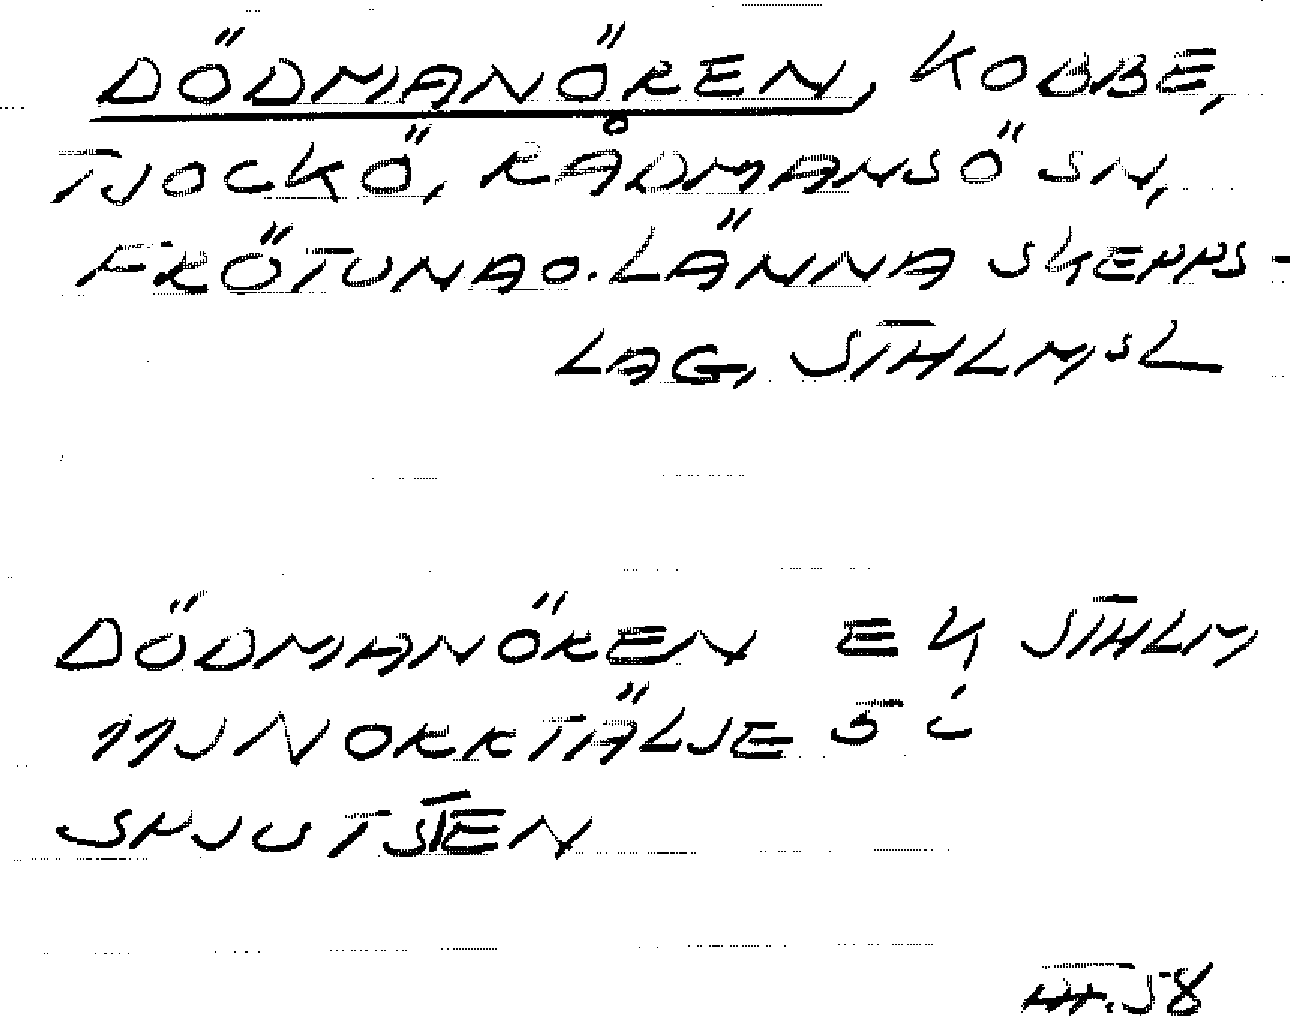 DÖDMANÖREN, KOBBE,
TJOCKÖ, RÅDMANSÖ SN,
FRÖTUNA O. LÄNNA SKEPPS-
LAG, STHLMS L
DÖDMANÖREN EK STHLM
11J NORRTÄLJE 5 C
SPJUTSTEN
58